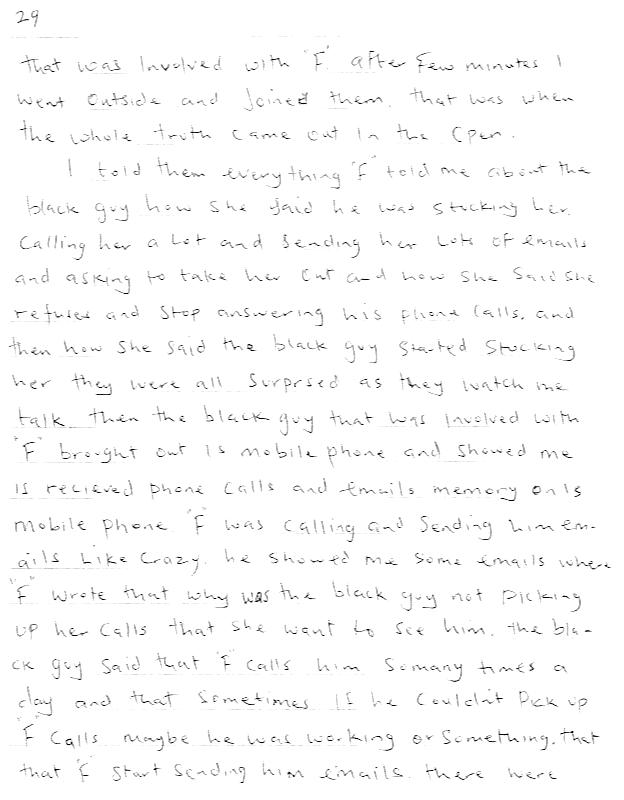 29
that was Involved with "F". after few minutes I
went outside and Joined them. that was when
the whole truth came out In the Open.
I told them everything "F" told me about the
black guy how she said he was stucking her.
Calling her a Lot and Sending her Lots of emails
and asking to take her Out and how She Said She
refuses and Stop answering his phone Calls. and
then how She Said the black guy Started Stucking
her they were all Surprsed as they watch me
talk. then the black guy that was Involved with
"F" brought out Is mobile phone and Showed me
Is recieved phone Calls and Emails memory on Is
mobile phone. "F" was Calling and Sending him em-
ails Like Crazy. he showed me Some Emails where
"F" wrote that why was the black guy not Picking
up her Calls that She want to See him. the bla-
ck guy Said that "F" Calls him Somany times a
day and that Sometimes If he Couldn't Pick up
"F" Calls maybe he was working or Something. that
that "F" Start Sending him emails. there were